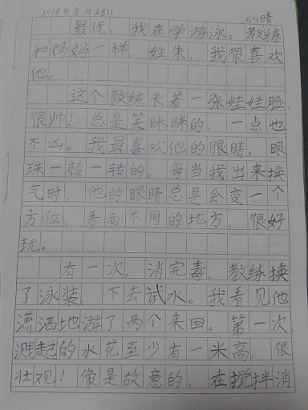 2015年8月25日 晴
最近，我在学游泳。教练
和妈妈一样，姓朱，我很喜欢
他。
这个教练长着一张娃娃脸，
很帅！总是笑咪咪的，一点也
不凶。我最喜欢他的眼睛，眼
珠一转一转的。每当我出来换
气时，他的眼睛总是会变一个
方位，看向不同的地方，很好
玩。
有一次，消完毒，教练换
了泳装，下去试水。我看见他
潇洒地游了两个来回。第一次，
溅起的水花至少有一米高，很
壮观！像是故意的，在搅拌消